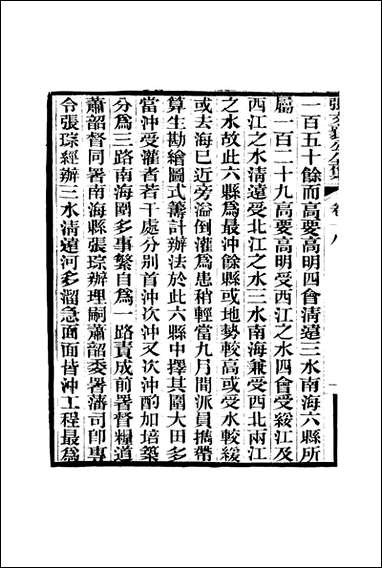 張文襄公奏議 卷十八
一百五十餘而高要高明四會清遠三水南海六縣所
屬一百二十九高要高明受西江之水四會受綏江及
西江之水清遠受北江之水三水南海兼受西北兩江
之水故此六縣為最沖餘縣或地勢較高或受水較緩
或去海已近旁溢倒灌為患稍輕當九月間派員攜帶
算生勘繪圖式籌計辦法於此六縣中擇其圍大田多
當沖受灌者若干處分別首沖次沖又次沖酌加培築
分為三路南海圍多事繁自為一路責成前署督糧道
蕭韶督同署南海縣張琮辦理嗣蕭韶委署藩司卽專
令張琮經辦三水清遠河多溜急面面皆沖工程最為